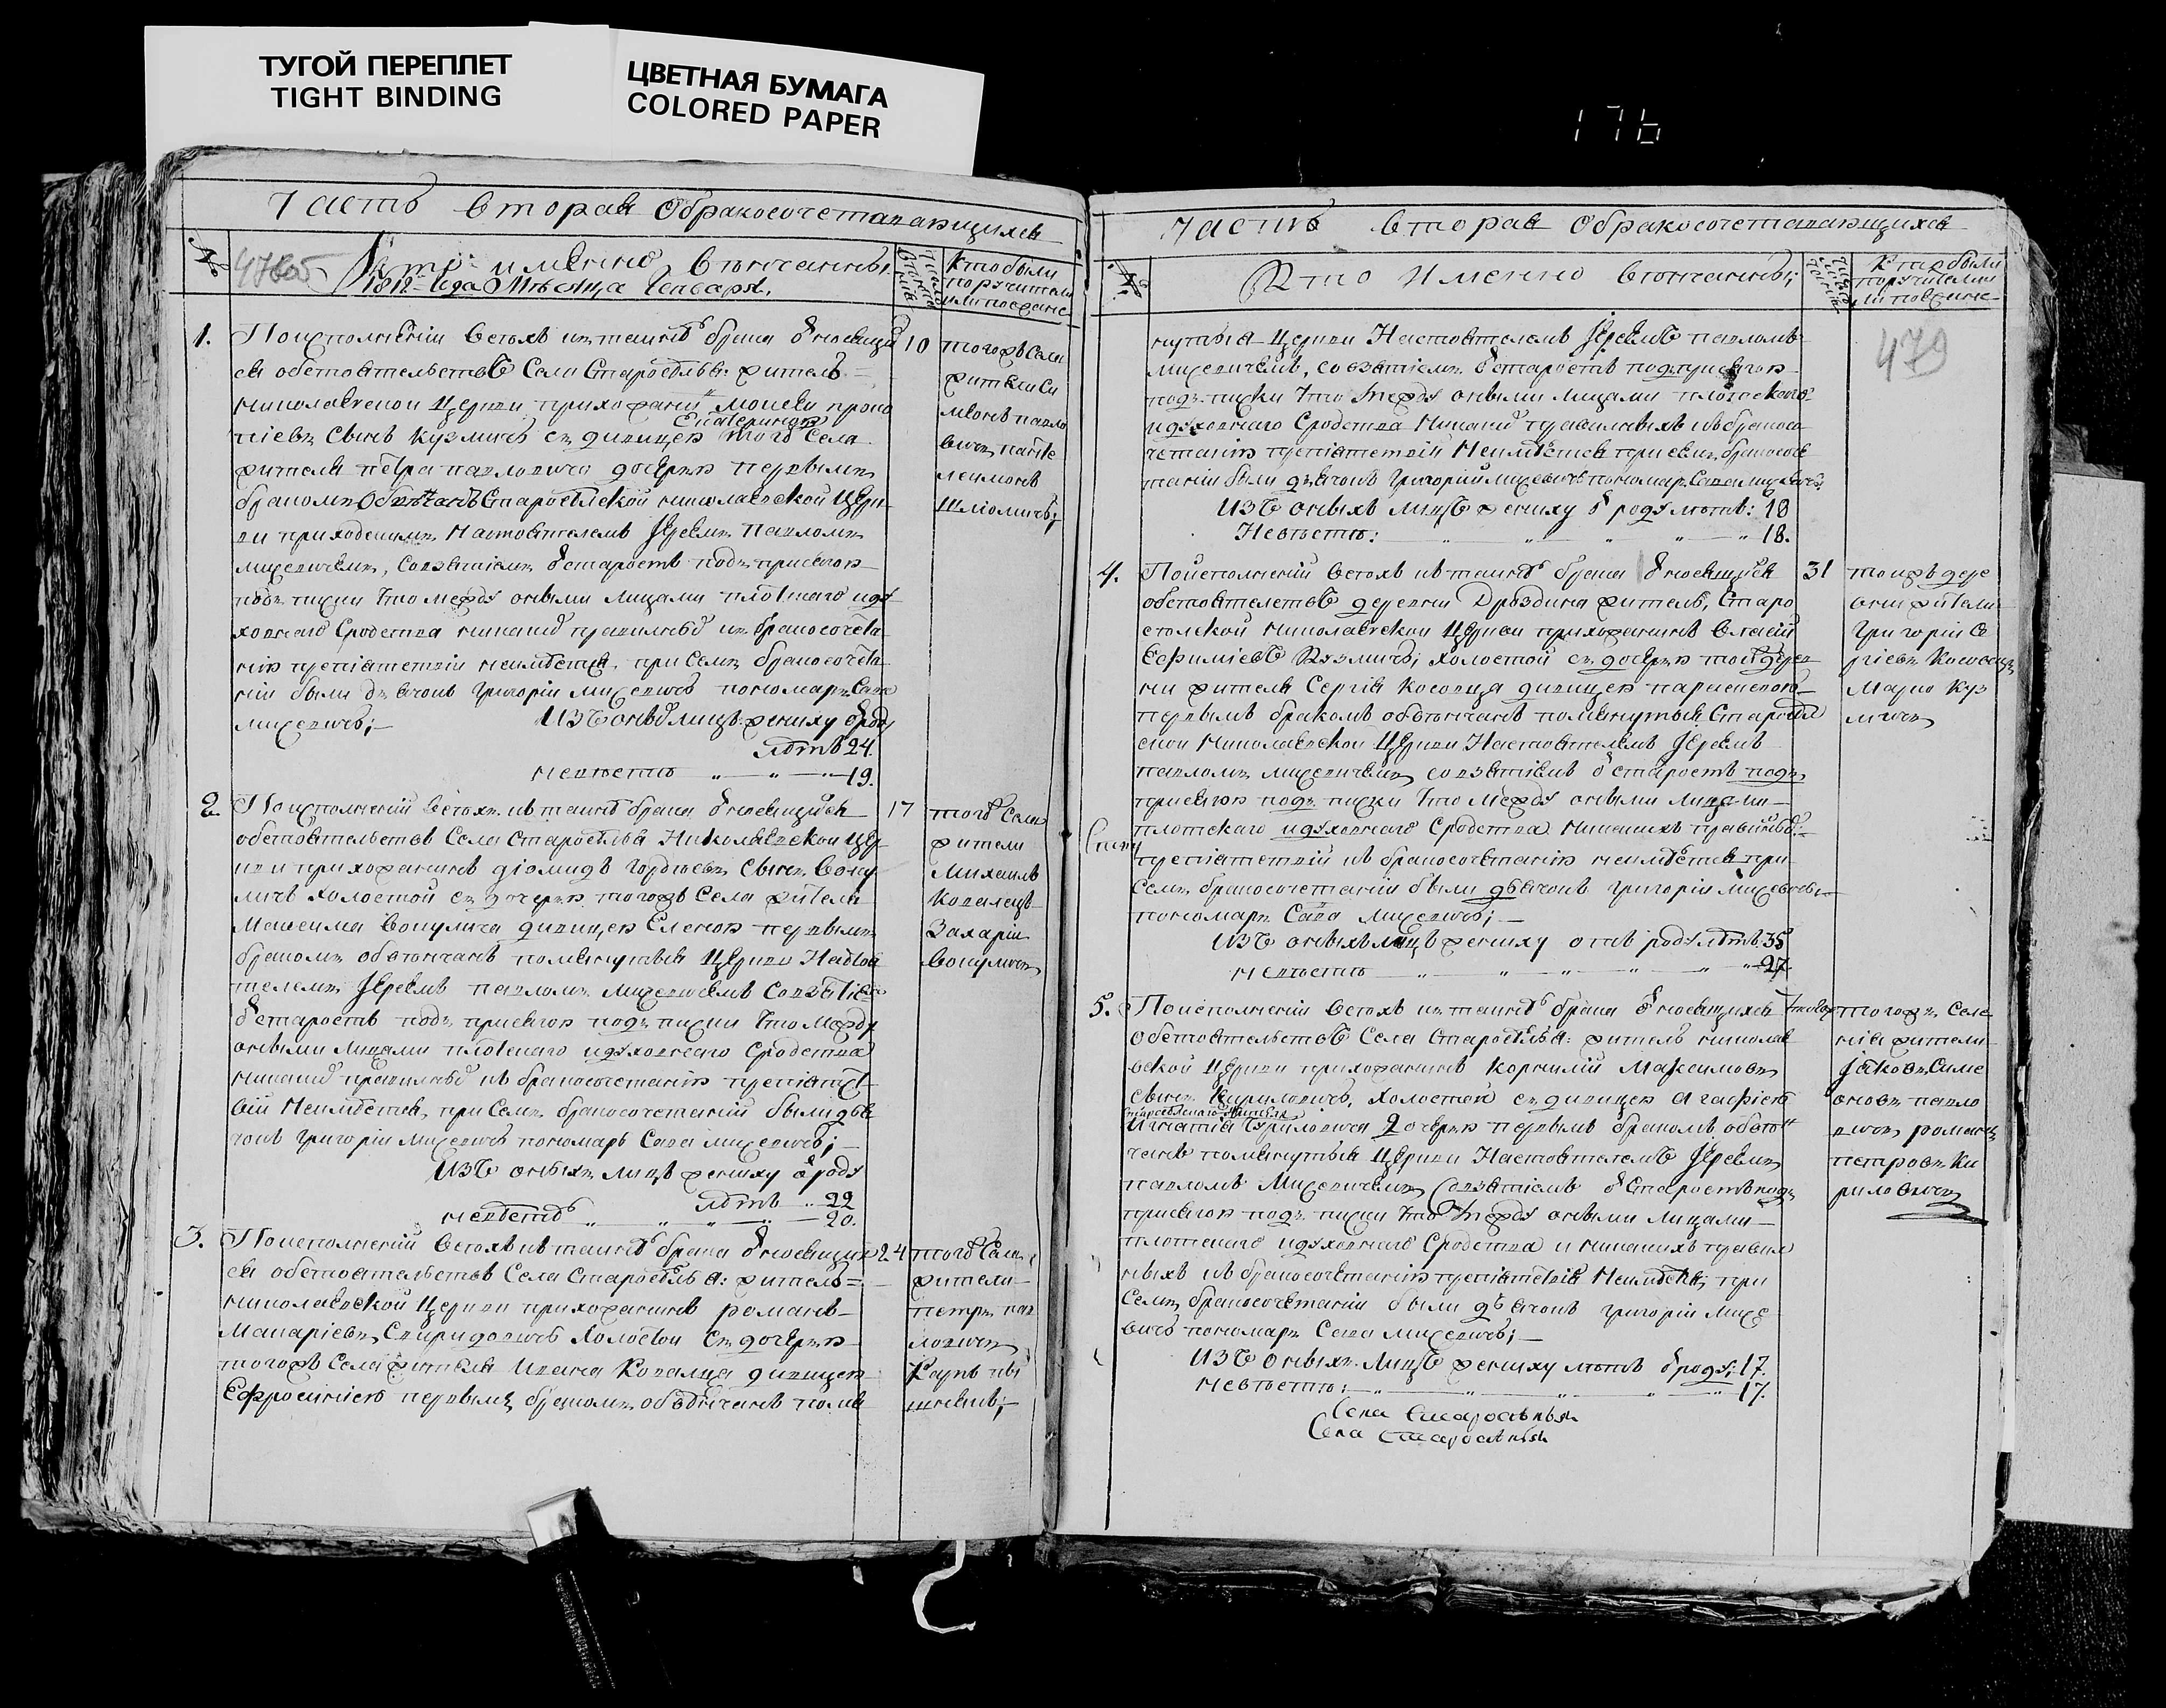 ТУГОЙ ПЕРЕПЛЕТ
TIGHT BINDING
ЦВЕТНАЯ БУМАГА
COLORED PAPER
176
Часть вторая Обракосочетавающихся
№
Кто именно венчанны,
Года Месяца Генваря.
Кто были
поручители
или поезжане
1.
По исполнении всехъ къ таинству брака относящи
ся обстоятельствъ Села Староселья: житель
николаевской Церкви прихожанинъ Моисей Проко
Екатериною
піевъ сынъ Кузмичъ съ девицею того Села
жителя Петра Павловича дочерью первымъ
бракомъ Обвенчанъ Старосельской николаевской Церк
ви приходскимъ Настоятелемъ Іереемъ Павломъ
Михевичемъ, совзятіемъ от старостъ подъ присягою
подъ писки что между оными лицами плотскаго и ду
ховнаго Сродства никакихъ правильныхъ къ бракосочета
нію препятствій неимеется, при семъ бракосочета
ніи были дьячокъ Григорій Михевичъ пономарь Сава
Михевичъ;
Изъ оныхъ лицъ жениху от роду
летъ 24.
невесте 19.
10
того жъ Села
жители Си
меонъ Павло
вичъ Панте
леимонъ
2.
По исполненіи всехъ къ таинству брака относящихся
обстоятельствъ Села Староселья Николаевской Цер
кви прихожанинъ Діомидъ Гордіевъ сынъ Воку
личъ холостой съ дочерью тогожъ Села жителя
Максима Вокулича девицею Еленою первымъ
бракомъ обвенчанъ помянутыя Церкви Настоя
телемъ Іереемъ Павломъ Михевичемъ совзятіемъ
от старостъ подъ присягою подъ писки что между
оными лицами плотскаго и духовнаго Сродства
никакихъ правильныхъ къ бракосочетанію препятст
вій неимеется, при Семъ бракосочетаніи были дья
чокъ Григорій Михевичъ пономарь Сава Михевичъ;
Изъ оныхъ лицъ жениху от роду
летъ 22
невесте 20.
17
того Села
жители
Михаилъ
Ковалецъ
Захарій
Вокуличъ
3.
По исполненіи всехъ къ таинству брака относящих
ся обстоятельствъ Села Староселья: житель
николаевской Церкви прихожанинъ романъ
Макаріевъ Свиридовичъ холостой съ дочерью
тогожъ Села жителя Ивана Ковалца девицею
Ефросиніею первымъ бракомъ обвенчанъ помя
24
того Села
жители
петръ пав
ловичъ
Часть вторая Обракосочетавающихся
№
Кто Именно венчанны;
Кто были
поручители
или поезжане
479
нутыя Церкви Настоятелемъ Іереемъ Павломъ
Михевичемъ, совзятіемъ от старостъ подъ присягою
подъ писки что между оными лицами плотскаго
и духовнаго Сродства Никакихъ правильныхъ къ бракосо
четанію препятствій Неимеется при семъ бракосоче
таніи были дьячокъ Григорій Михевичъ пономарь Сава Михевичъ.
Изъ оныхъ лицъ жениху от роду летъ: 18
Невесте: 18.
4.
По исполненіи всехъ къ таинству брака относящихся
обстоятельствъ деревни Дроздина житель, Старо
селской Николаевской Церкви прихожанинъ
Ефиміевъ Кузмичъ; холостой съ дочерью той дерев
ни жителя Сергія Косовца девицею
первымъ бракомъ обвенчанъ помянутыя Старосел
ской Николаевской Церкви Настоятелемъ Іереемъ
Павломъ Михевичемъ совзятіемъ от старостъ подъ
присягою подъ писки что между оными лицами
плотскаго и духовнаго Сродства Никакихъ правильныхъ
препятствій къ бракосочетанію неимеется при
Семъ бракосочетаніи были дьячокъ Григорій Михевичъ
пономарь Сава Михевичъ;
Изъ оныхъ лицъ жениху отъ роду летъ 35
невесте 27.
31
той жъ дере
вни жители
Григорій Се
ргіевъ Косовецъ
Марко Куз
мичъ
5.
По исполненіи всехъ къ таинству брака относящихся
Обстоятельствъ Села Староселья: житель николае
вской Церкви прихожанинъ Корнилій Максимовъ
сынъ Кириловичъ, холостой съ девицею Агафіею
Игнатія Кириловича дочерью первымъ бракомъ обвен
чанъ помянутыя Церкви Настоятелемъ Іереемъ
Павломъ Михевичемъ совзятіемъ от Старостъ подъ
присягою подъ писки что между оными лицами
плотскаго и духовнаго Сродства и никакихъ правил
ныхъ къ бракосочетанію препятствія Неимеется, при
Семъ бракосочетаніи были дьячокъ Григорій Михе
вичъ пономарь Сава Михевичъ;
Изъ оныхъ лицъ жениху летъ от роду; 17.
невесте: 17.
тогожъ селе
нія жители
Іаковъ Симе
оновъ павло
вичъ романъ
петровъ Ки
риловичъ
Села Староселья
Села Староселья